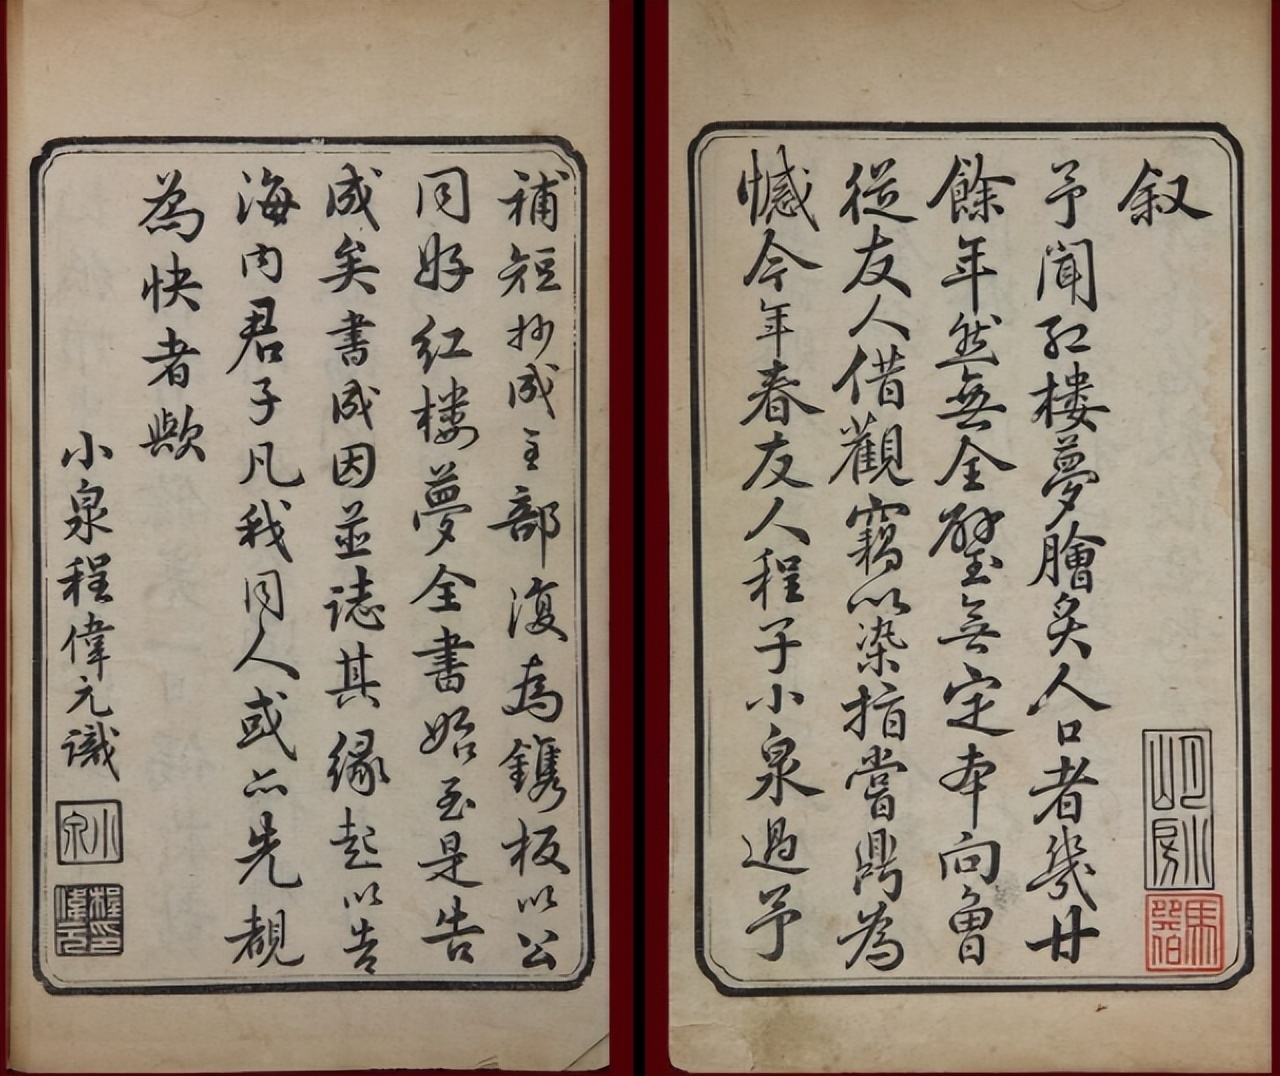 叙
予聞紅樓夢膾炙人口者幾廿
餘年然無全璧無定本向曾
從友人借觀竊以染指嘗鼎為
憾今年春友人程子小泉過予
補短抄成全部復為鐫板以公
同好紅樓夢全書始至是告
成矣書成因並誌其緣起以告
海內君子凡我同人或亦先覩
為快者歟
小泉程偉元識
小泉
程印偉元